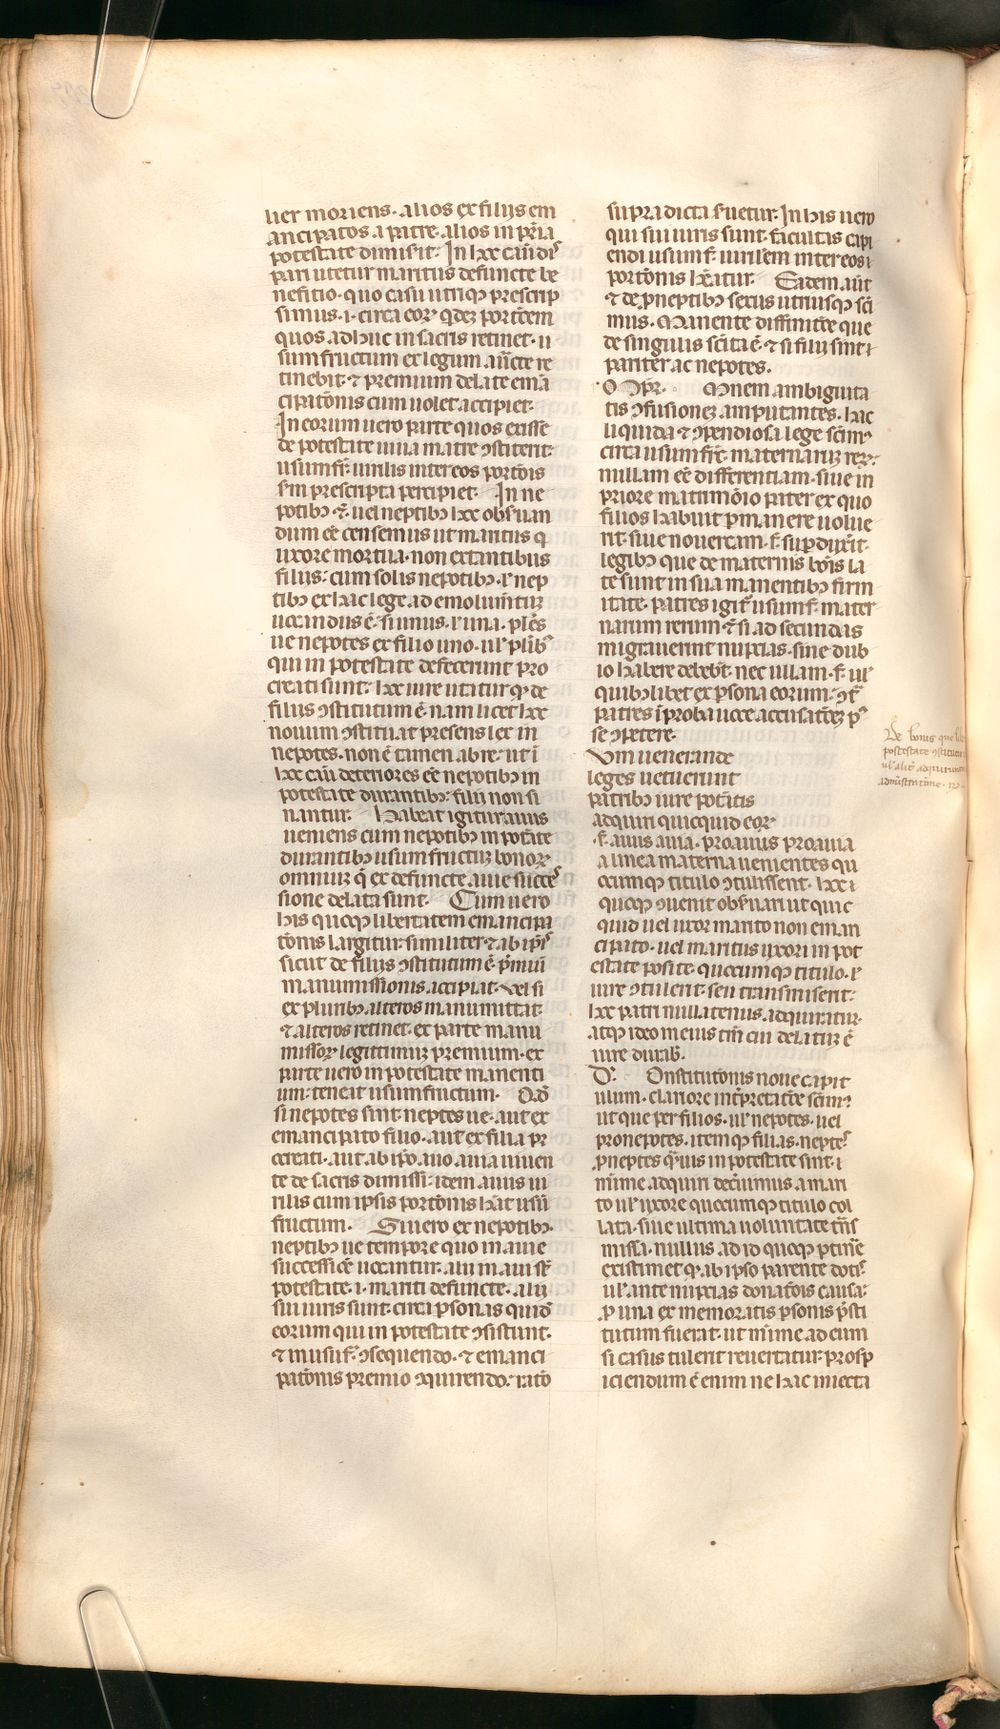 lier moriens. alios ex filiis em
ancipatos a patre. alios in pr̄ia
potestate dimisit. In hac cau̅ di
pari utetur maritus defuncte be
nefitio. quo casu utrumq; prescrip
simus. i. circa eorꝝ qđẽ portōem
quos ad huc in sacris retinet. u
sumfructum ex legum auc̄te re
tinebit. ⁊ premium delate emā
cipatōnis cum uolet accipiet.
In eorum uero parte quos extisse
de potestate uiua matre ɔstiterit
usumfr̄. uirilis inter eos portōis
s̄m prescripta percipiet. In ne
potibꝫ ⁊. uel neptibꝫ hec obs̄uan
dum eē censemus ut maritus q̄
uxore mortua. non extantibus
filiis: cum solis nepotibꝫ. ł nep
tibꝫ ex hac lege. ad emolumtū
uocandus ē. si unus. ł una. plēs
ue nepotes ex filio uno. uł plibꝫ
qui in potestate defecerunt pro
creati sunt. hec iure utatur qđ de
filiis ɔstitutum ē. nam licet hec
nouum ɔstituat presens lex in
nepotes. non ē tamen ab re. ut ī
hac cau̅ deteriores eē nepotibꝫ in
potestate durantibꝫ: filii non si
nantur. Habeat igitur auus
ueniens cum nepotibꝫ in potāte
durantibꝫ usumfructuꝫ bonoꝝ
omniuꝫ q̄ ex defuncte. auie succes
sione delata sunt. Cum uero
his quoqꝫ libertatem emancipa
tōnis largitur: similiter ⁊ ab ipīs
sicut de filiis ɔstitutum ē. p̄miū
manumissionis. accipiat. vel si
ex pluribꝫ alteros manumittat:
⁊ alteros retinet. ex parte manu
missoꝝ legittimuꝫ premium. ex
parte uero in potestate manenti
um: teneat usumfructum. Qđ
si nepotes sint. neptes ue. aut ex
emancipato filio. aut ex filia pr
ocreati. aut ab ipō. auo auia uiuen
te de sacris dimissi: idem auus ui
rilis cum ipsis portōnis hēat usū
fructum. Si uero ex nepotibꝫ.
neptibꝫ ue tempore quo in auie
successiōe uocantur. alii in aui s̄t
potestate. i. mariti defuncte. alii
sui iuris sunt. circa ꝑsonas quidē
eorum qui in potestate ɔsistunt.
⁊ in usuf̄r. ɔsequendo. ⁊ emanci
patōnis premio acquirendo. ratō
supradicta s̄uetur. In his uero
qui sui iuris sunt. facultas capi
endi usumf̄r. uirilem inter eos i
portōnis hēatur. Eadem aūt
⁊ de ꝓneptibꝫ sexus utriusqꝫ sci
mus. Manente diffinitōe que
de singulis sc̄ita ē. ⁊ si filii sint i
pariter ac nepotes.
O mnem ambiguita
tis ɔfusioneꝫ amputantes. hac
liquida ⁊ ɔpendiosa lege sc̄imꝰ
circa usumfr̄c. maternaruꝫ reꝝ:
nullam eē differentiam. siue in
priore matrimōio pater ex quo
filios habuit ꝑmanere uolue
rit. siue nouercam. f̄. sup̄ dux̄it.
legibꝫ que de maternis bōis la
te sunt in sua manentibꝫ firm
itate. patres igit̄ usumf̄. mater
narum rerum ⁊ si ad secundas
migrauerint nuptias. sine dub
io habere debeb̄t. nec ullam. f̄. uł
quibꝫlibet ex ꝑsona eorum. ɔt̄
patres īproba uoce accusatōeꝫ p̄
se ɔpetere.
Cum uenerande
leges uetuerint
patribꝫ iure potātis
adquiri quicquid eoꝝ
f̄. auus auia. proauus proauia
a linea materna uenientes qu
ocumqꝫ titulo ɔtulissent. hoc i
quoqꝫ ɔuenit obs̄uari ut quic
quid uel uxor marito non eman
cipato. uel maritus uxori in pot
estate posite. quocumqꝫ titulo. ł
iure ɔtulerit. seu transmiserit:
hoc patri nullatenus. adquiratur.
atqꝫ ideo in eius tm̄ cui delatuꝫ ē
iure durab̄.
D. Onstitutōnis noue capit
ulum. clariore int̄pretatōe sc̄imꝰ
ut que per filios. uł nepotes. uel
pronepotes. itemqꝫ filias. neptes
ꝓneptes q̄uis in potestate sint. i
mīme adquiri decreuimus a mari
to uł uxore quocumqꝫ titulo col
lata. siue ultima uoluntate trāns
missa. nullus ad id quoqꝫ ꝑtinē
existimet qđ ab ipso parente dotis
uł ante nuptias donatōis causa:
ꝓ una ex memoratis ꝑsonis p̄sti
tutum fuerat. ut mīme ad eum
si casus tulerit reuertatur: prosp
iciendum ē enim ne hac iniecta
De bonis que lib
postestate ɔstitutis
uł alit̄ adquiruntur
adminstratiōne.